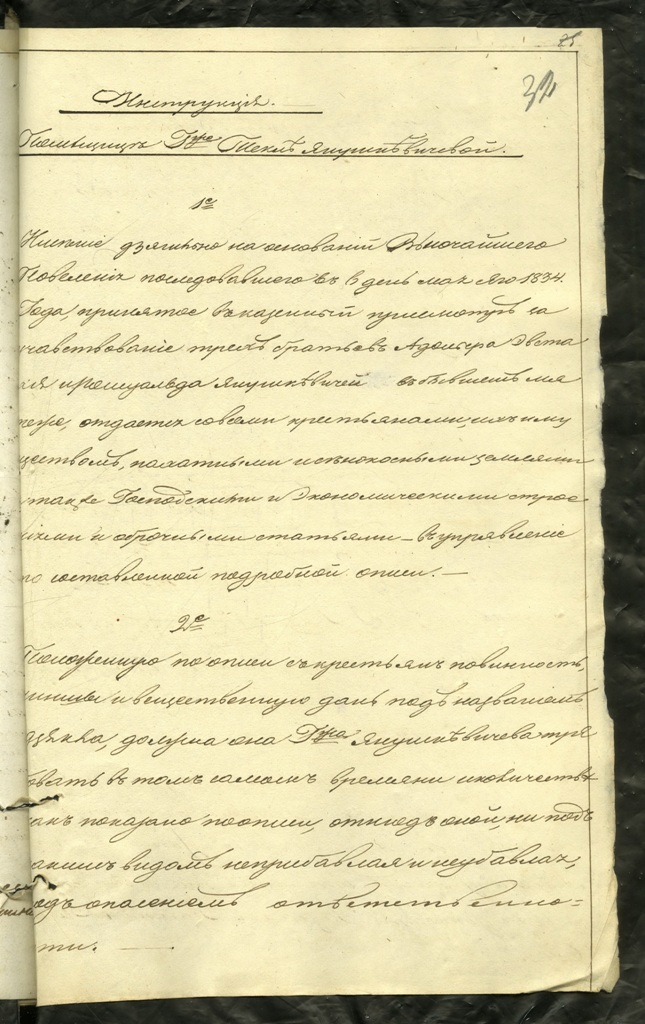 75
32
Инструкція.
Помѣщицѣ Гжѣ Теклѣ Янушкѣвичевой.
1е
Имѣніе Дзягильно на основаніи Высочайшего
Повеленія последовавшего въ 6 день мая 1834.
Года, принятое въ казенный присмотръ за
участвованіе трехъ братьевъ Адольфа Эвста
хія и Ромуальда Янушкѣвичей въ бывшемъ мя
теже, отдается со всеми крестьянами, ихъ иму
ществомъ, пахатными и сѣнокосными землями
а также Господскими и Экономическими строе
ніями и оброчными статьями – въ управленіе
по составленной подробной описи. —
2е
Положенную по описи съ крестьянъ повинность,
чинши и вещественную дань подъ названіемъ
дзякла, должна она Гжа Янушкѣвичева тре
бовать въ томъ самомъ времяни и количествѣ
какъ показано по описи, отнюдъ оной, ни подъ
какимъ видомъ неприбавляя и неубавляя,
подъ опасеніемъ отвѣтственно=
сти. —